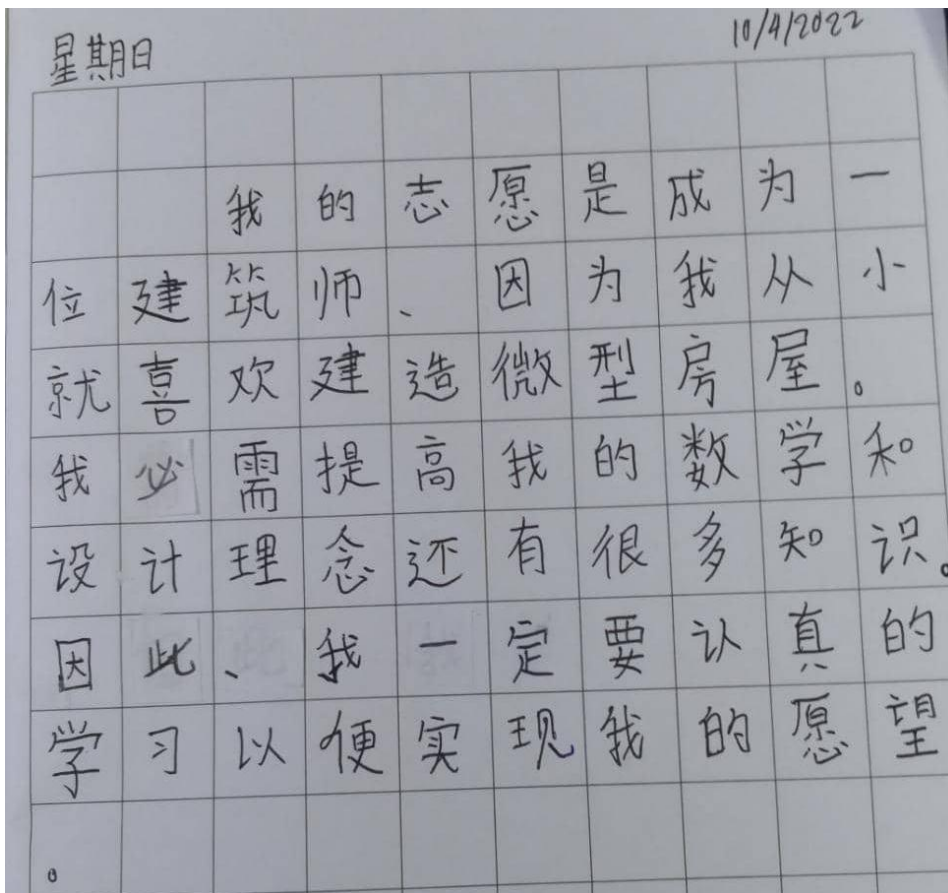 星期日 10/4/2022
我的志愿是成为一
位建筑师、因为我从小
就喜欢建造微型房屋。
我必需提高我的数学和
设计理念还有很多知识。
因此、我一定要认真的
学习以便实现我的愿望
。